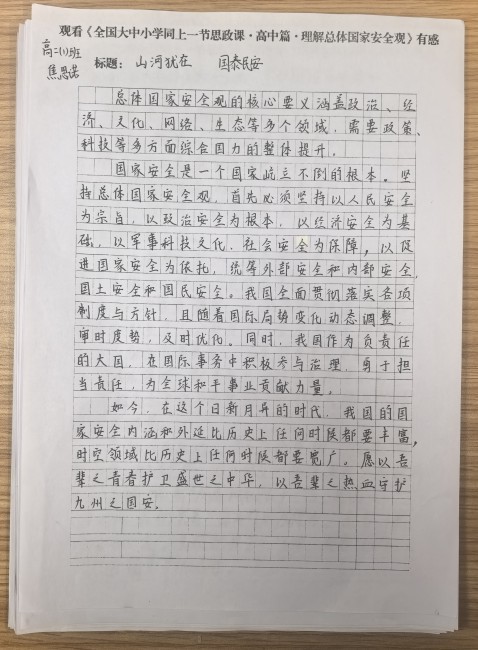 观看《全国大中小学同上一节思政课·高中篇·理解总体国家安全观》有感
高二(1)班
焦思诺
标题：山河犹在 国泰民安
总体国家安全观的核心要义涵盖政治、经
济、文化、网络、生态等多个领域，需要政策、
科技等多方面综合国力的整体提升。
国家安全是一个国家屹立不倒的根本。坚
持总体国家安全观，首先必须坚持以人民安全
为宗旨，以政治安全为根本，以经济安全为基
础，以军事科技文化、社会安全为保障，以促
进国家安全为依托，统筹外部安全和内部安全，
国土安全和国民安全。我国全面贯彻落实各项
制度与方针，且随着国际局势变化动态调整，
审时度势，及时优化。同时，我国作为负责任
的大国，在国际事务中积极参与治理，勇于担
当责任，为全球和平事业贡献力量。
如今，在这个日新月异的时代，我国的国
家安全内涵和外延比历史上任何时候都要丰富，
时空领域比历史上任何时候都要宽广。愿以吾
辈之青春护卫盛世之中华，以吾辈之热血守护
九州之国安。